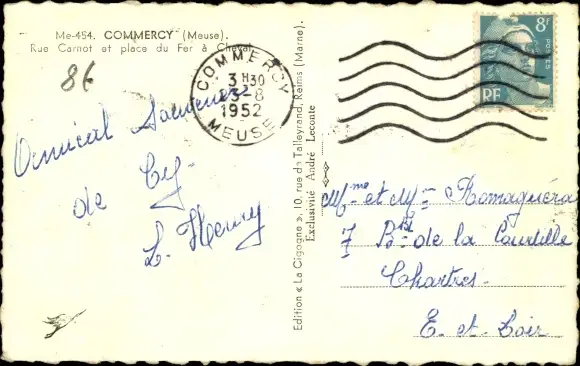 Me-454. COMMERCY (Meuse).
Rue Carnot et place du Fer à Cheval.
86
COMMERCY
3 H30
23-8
1952
MEUSE
8F
POSTES
RF
Amical Souvenir
de Cy
L. Henry
Edition « La Cigogne », 10, rue de Talleyrand, Reims (Marne).
Exclusivité André Leconte
Mme et Mr Romaguéra
7 Bd de la Courtille
Chartres.
E. et. Loir